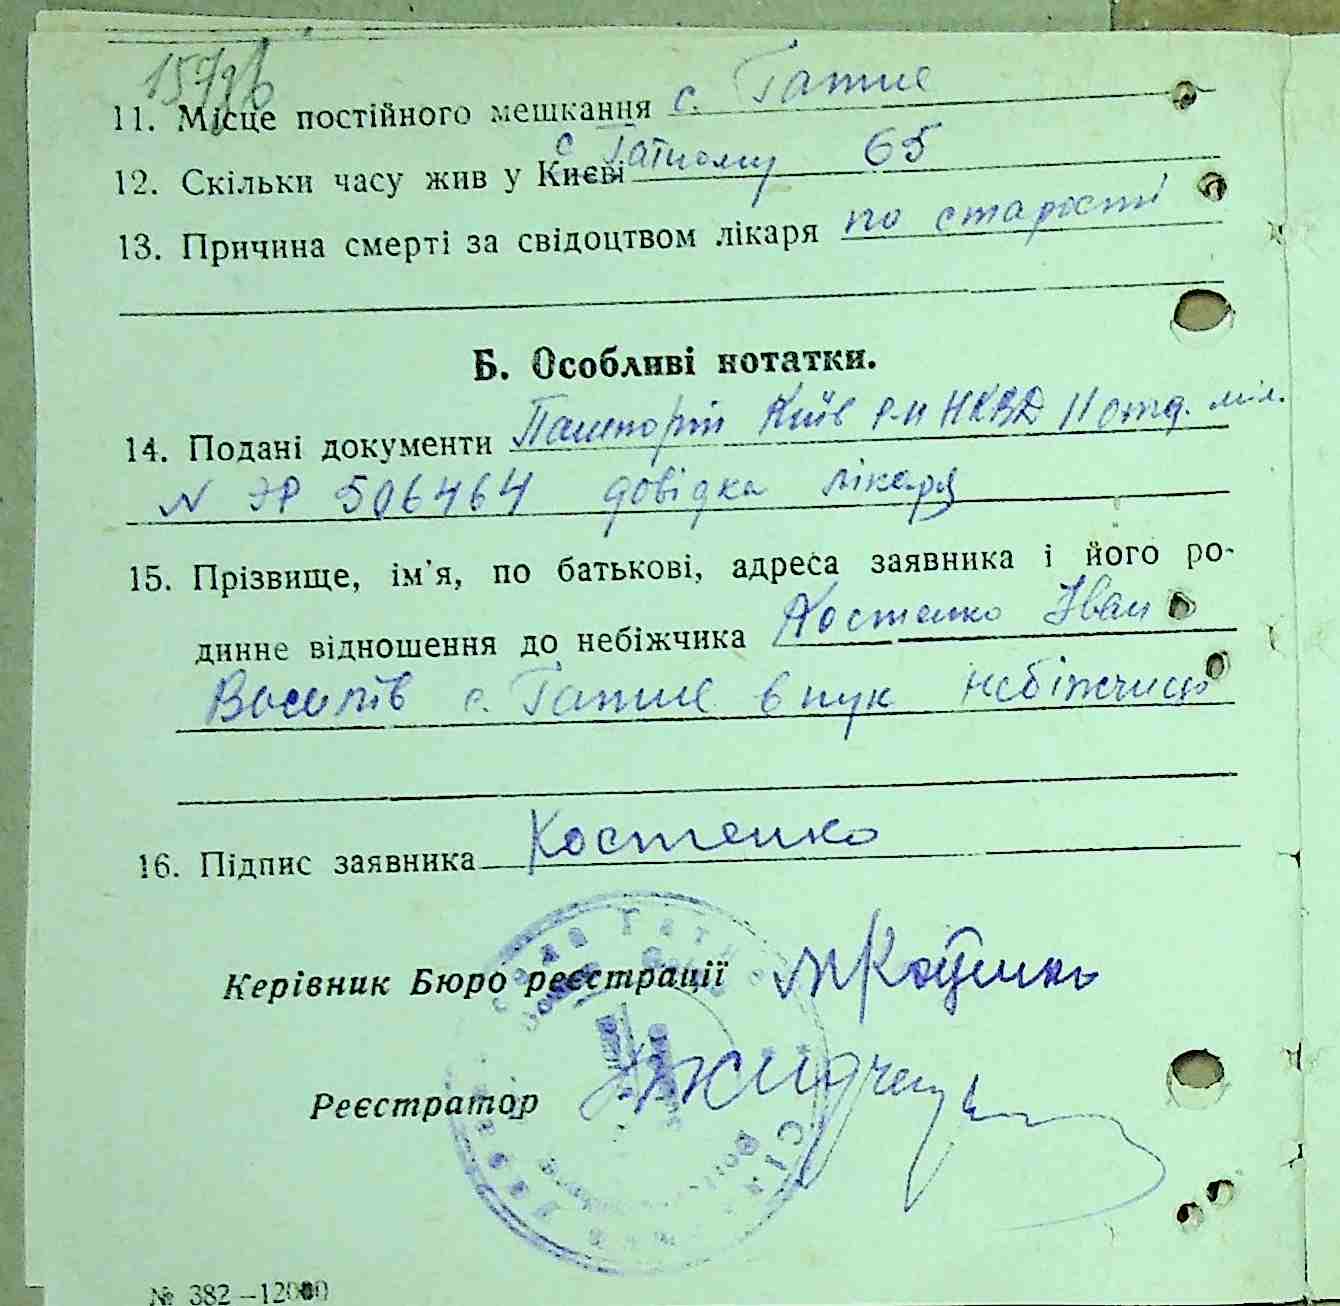 11. Місце постійного мешкання с. Гатне
12. Скільки часу жив у Києві с Гатному 65
13. Причина смерті за свідоцтвом лікаря по старості
Б. Особливі нотатки.
14. Подані документи Пашпорт Київ р-н НКВД 11 отд. міл.
N ЭР 506464 довідка лікаря
15. Прізвище, ім'я, по батькові, адреса заявника і його ро-
динне відношення до небіжчика Костенко Іван
Василів с. Гатне внук небіжчиці
16. Підпис заявника Костенко
Керівник Бюро реєстрації
Реєстратор
№ 382—12000